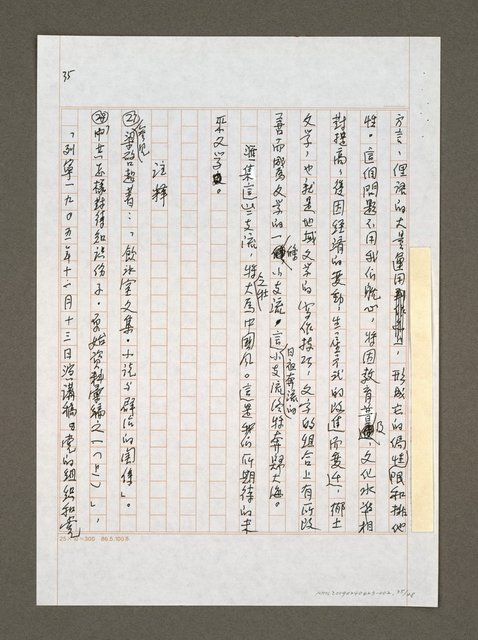 35
方言,俚語的大量運用上,形成它的偏狹、限和排他
性。這個問題不用我們耽心,將因教育普及,文化水準相
對提高,復因經濟的變動,生產方式的改進而變遷,鄉土
文學,也就是地域文學的寫作技巧,文字的組合上有所改
善而成為文學的一條小支流。這小支流日夜奔流的終將奔歸大海。
匯集這些支流,將大壯為中國風。這是我們所期待的未
來文學。
註釋
㉗參見梁啟超著:「飲冰室文集·小說與群治的關係」。
㉘中共怎樣對待知識份子。原始資料彙編之一(上)」,
「列寧一九〇五年十一月十三日演講稿:黨的組織和黨
25×12=300 86.5.100本
NMTL20090240623-002, 35/48